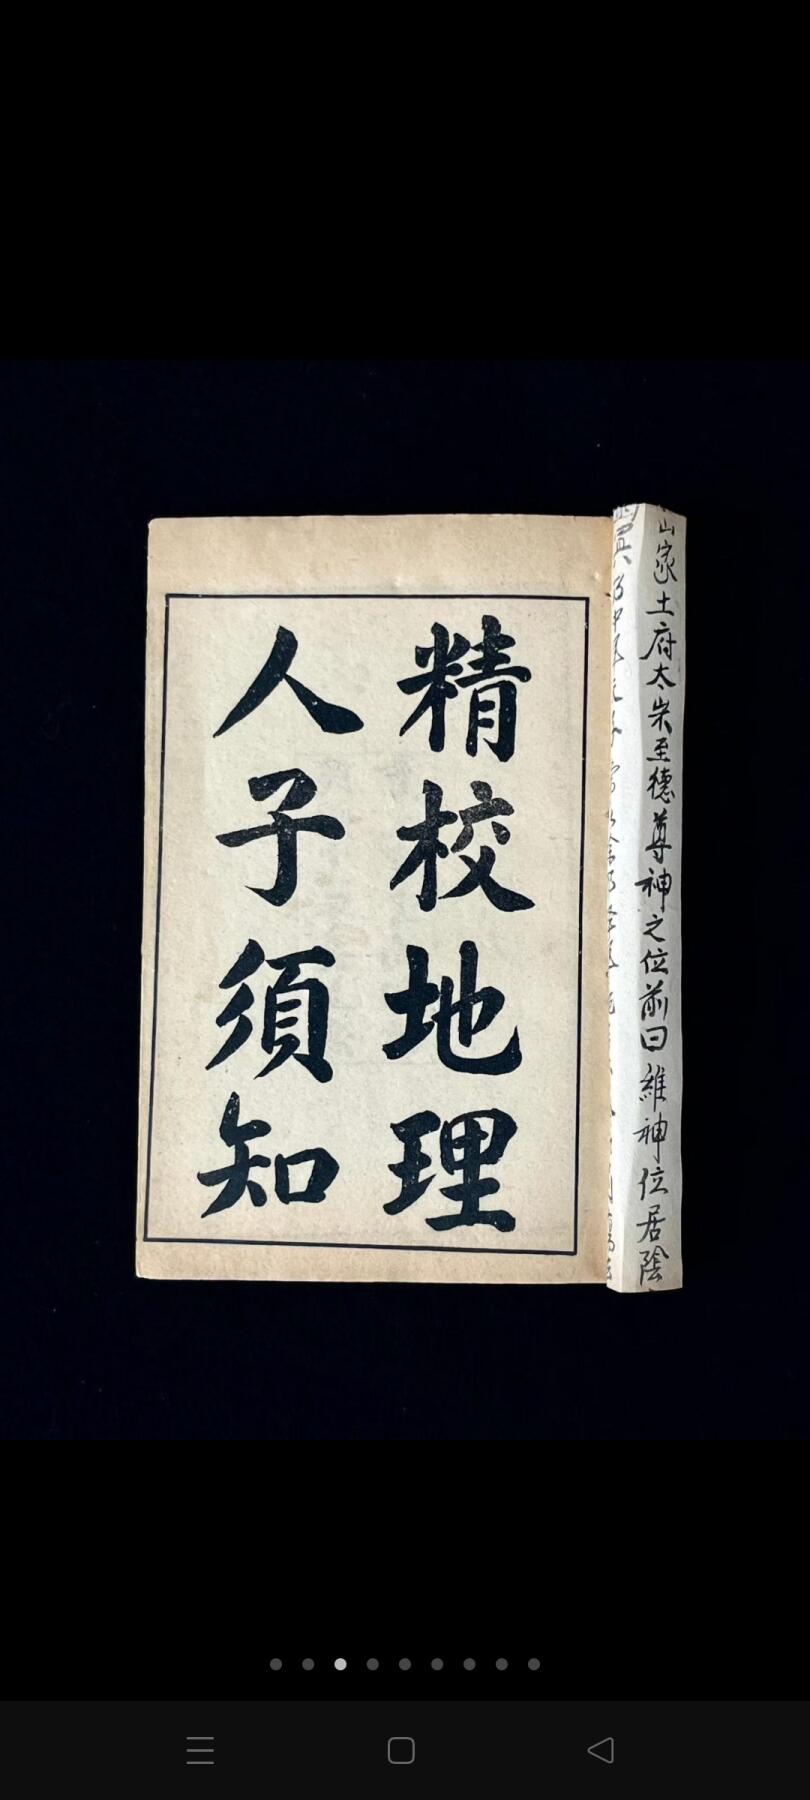 精校地理
人子須知
山家土府太岁至德尊神之位前曰維神位居陰